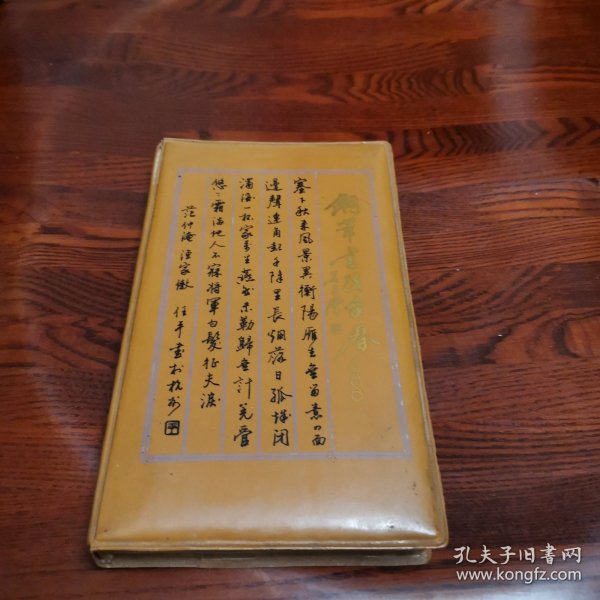 塞下秋来風景異衡陽雁去無留意四面
邊聲連角起千障里長烟落日孤城閉
濁酒一杯家萬里燕然未勒歸無計羌管
悠〻霜滿地人不寐將軍白髮征夫淚
范仲淹漁家傲 任平書於杭州
孔夫子旧书网
www.kongfz.com